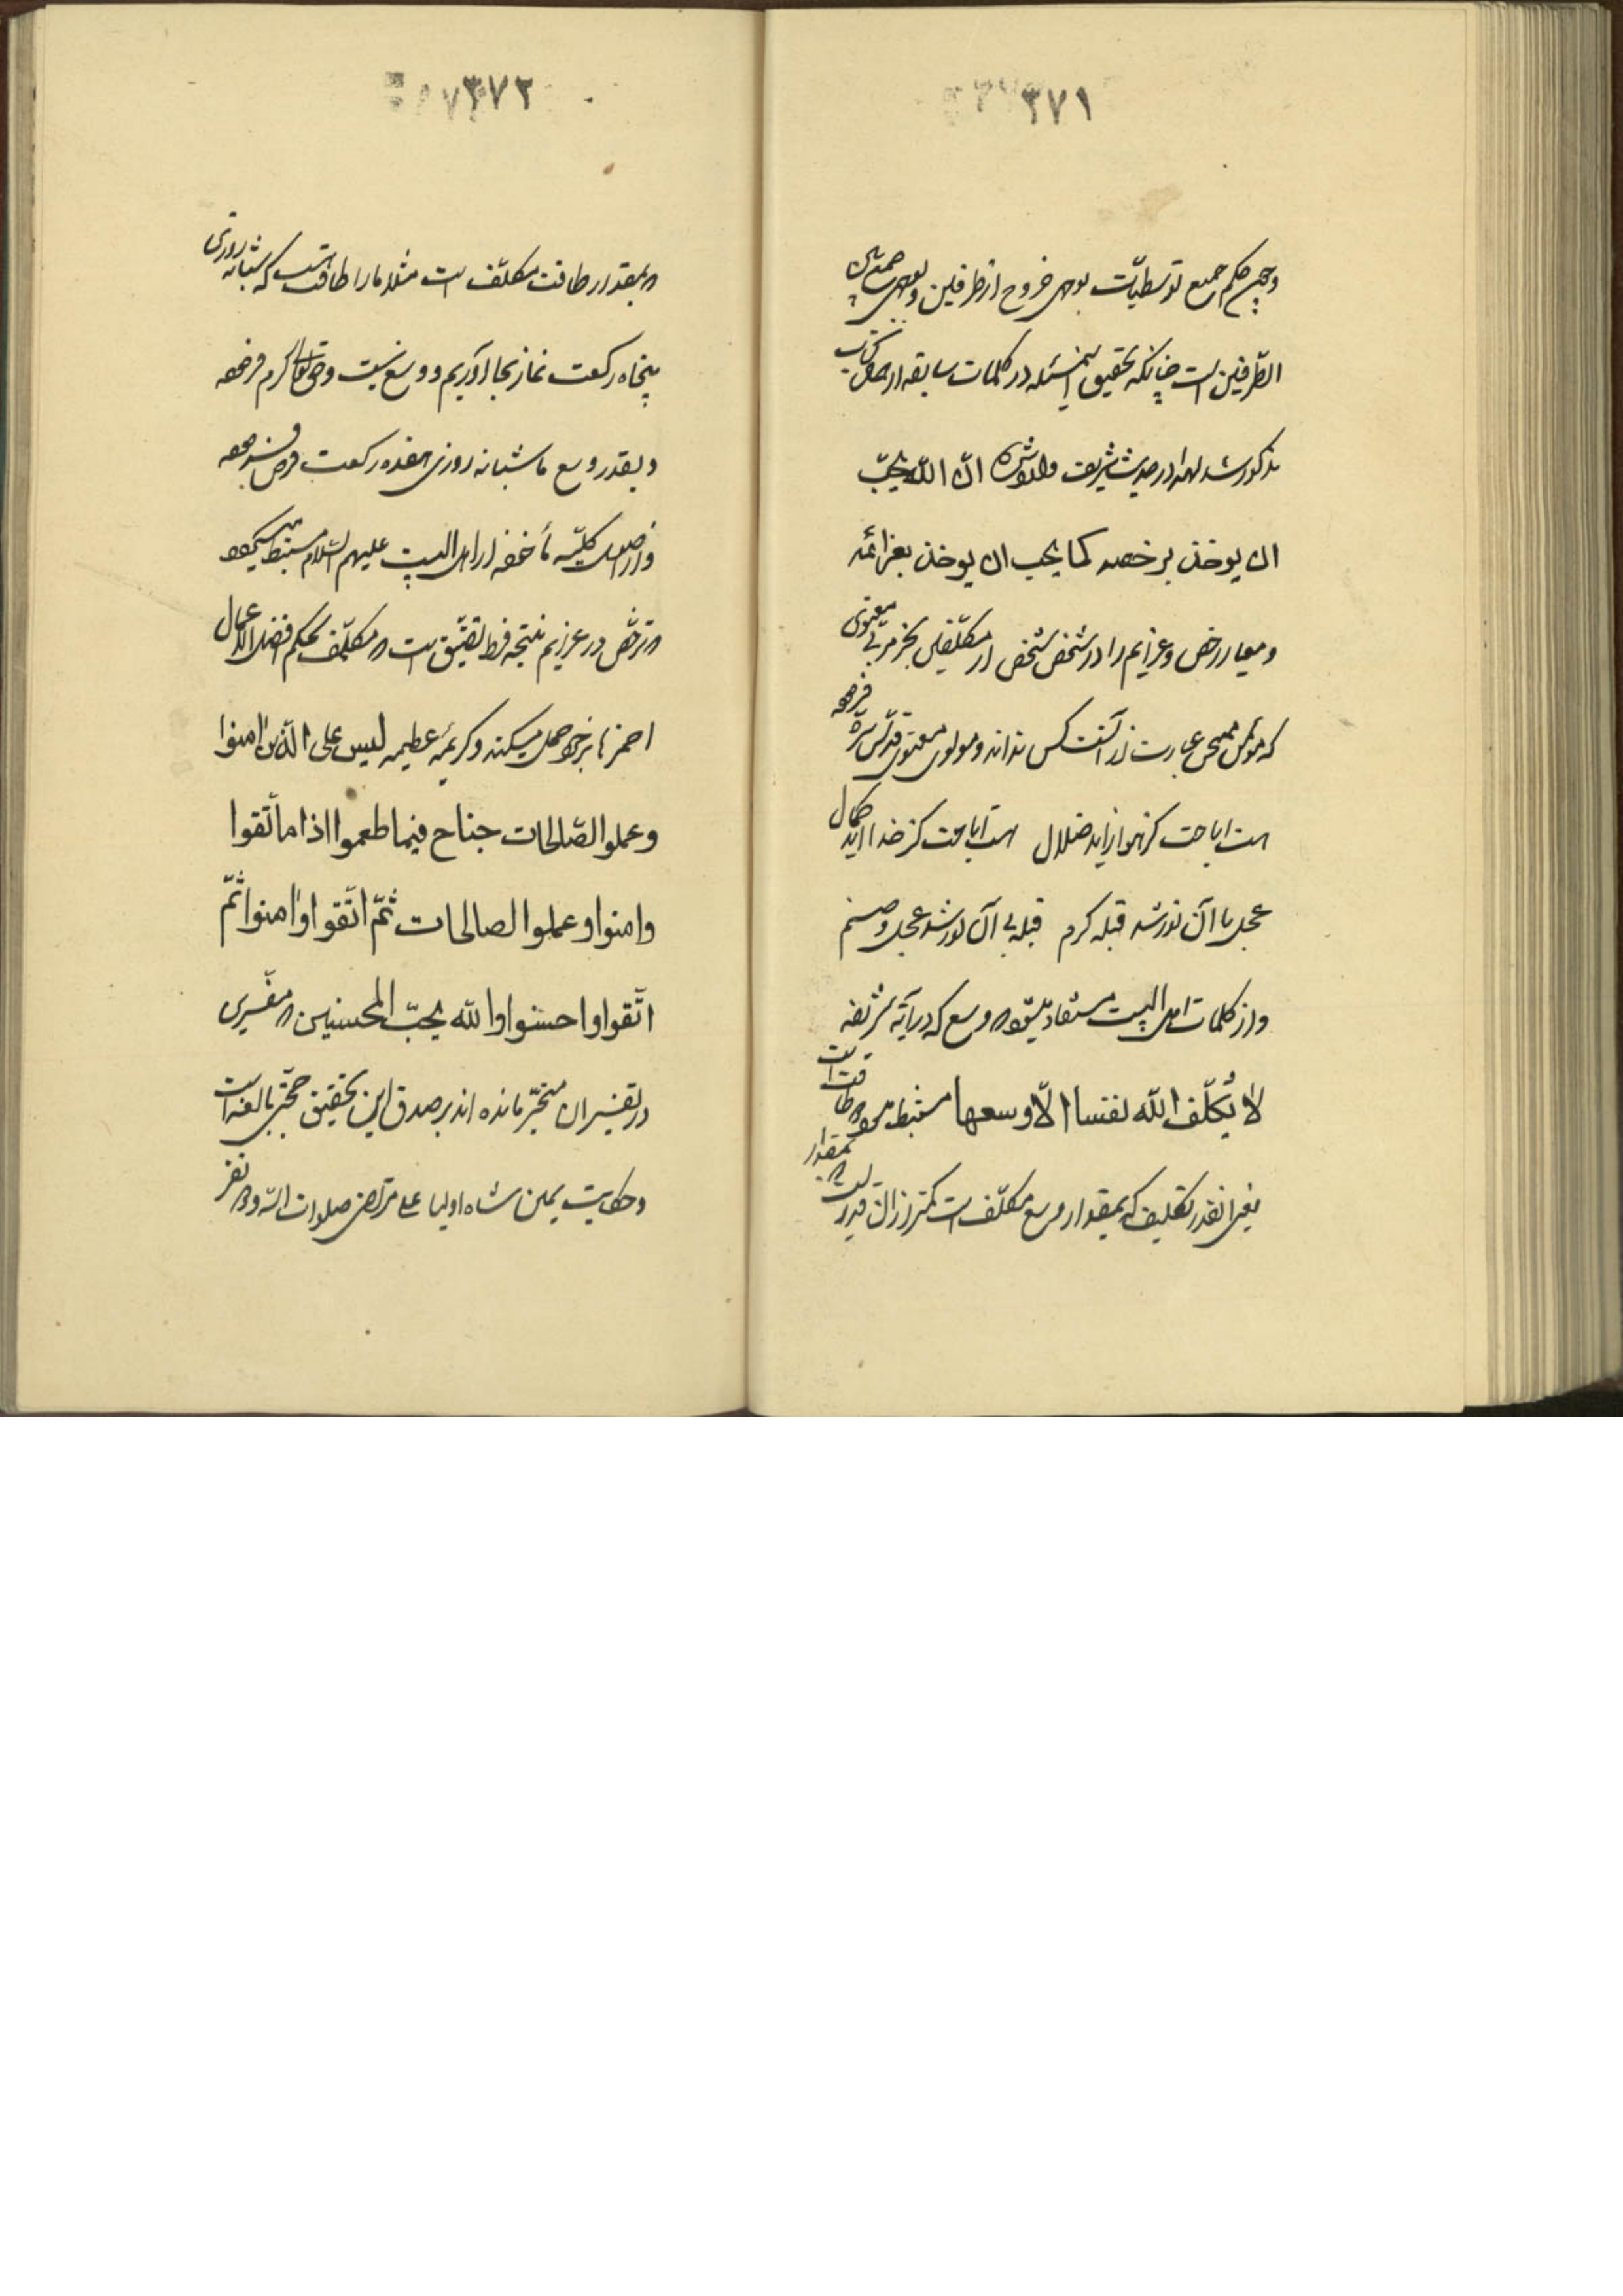 ٣٧١
و چون حکم جمیع توسطیات بوجهی خروج از طرفین و بوجهی
الطرفین است چنانکه تحقیق این مسئله در کلمات سابقه از این کتاب
مذکور شد لهذا در حدیث شریف وارد شده ان الله یحبّ
ان یوخذ برخصه کما یحب ان یوخذ بعزائمه
و معیار رخص و عزایم را در شخص شخص از مکلفین بجز مربی معنوی
که عبارت از آنست کس نداند و مولوی معنوی قدّس سرّه فرموده
هست اباحت کز هوا زاید ضلال هست اباحت کز خدا آید کمال
عجل با آن نور شد قبله کرم قبله بی آن نور شد عجل و صنم
و از کلمات اهل البیت مستفاد میشود وسع که در آیه شریفه
لا یُکلّف الله نفسا الّا وسعها مستنبط طاقت است
یعنی آنقدر تکلیف که بمقدار وسع مکلّف است کمتر از آن قدر است بمقدار
٣٧٢
که بمقدار طاقت مکلّف است مثلا ما را طاقت هست که شبانه روزی
پنجاه رکعت نماز بجا آوریم و وسع نیست و حق تعالی کرم فرموده
و بقدر وسع ما شبانه روزی هفده رکعت فرض فرموده
و از اصول کلیّه مأخوذه از اهل البیت علیهم السّلام مستنبط میگردد
که ترخّص در عزایم نتیجه فرط تعشّق است که مکلّف بحکم افضل الاعمال
احمزها بر خود حمل میکند و کریمه عظیمه لیس علی الّذین امنوا
و عملوا الصّالحات جناح فیما طعموا اذا ما اتّقوا
و امنوا و عملوا الصالحات ثمّ اتّقوا و امنوا ثمّ
اتّقوا و احسنوا و الله یحبّ المحسنین که مفسّرین
در تفسیر آن متحیّر مانده اند بر صدق این تحقیق حجّتی بالغه است
و حکایت یمین شاه اولیا علی مرتضی صلوات الله و نفر